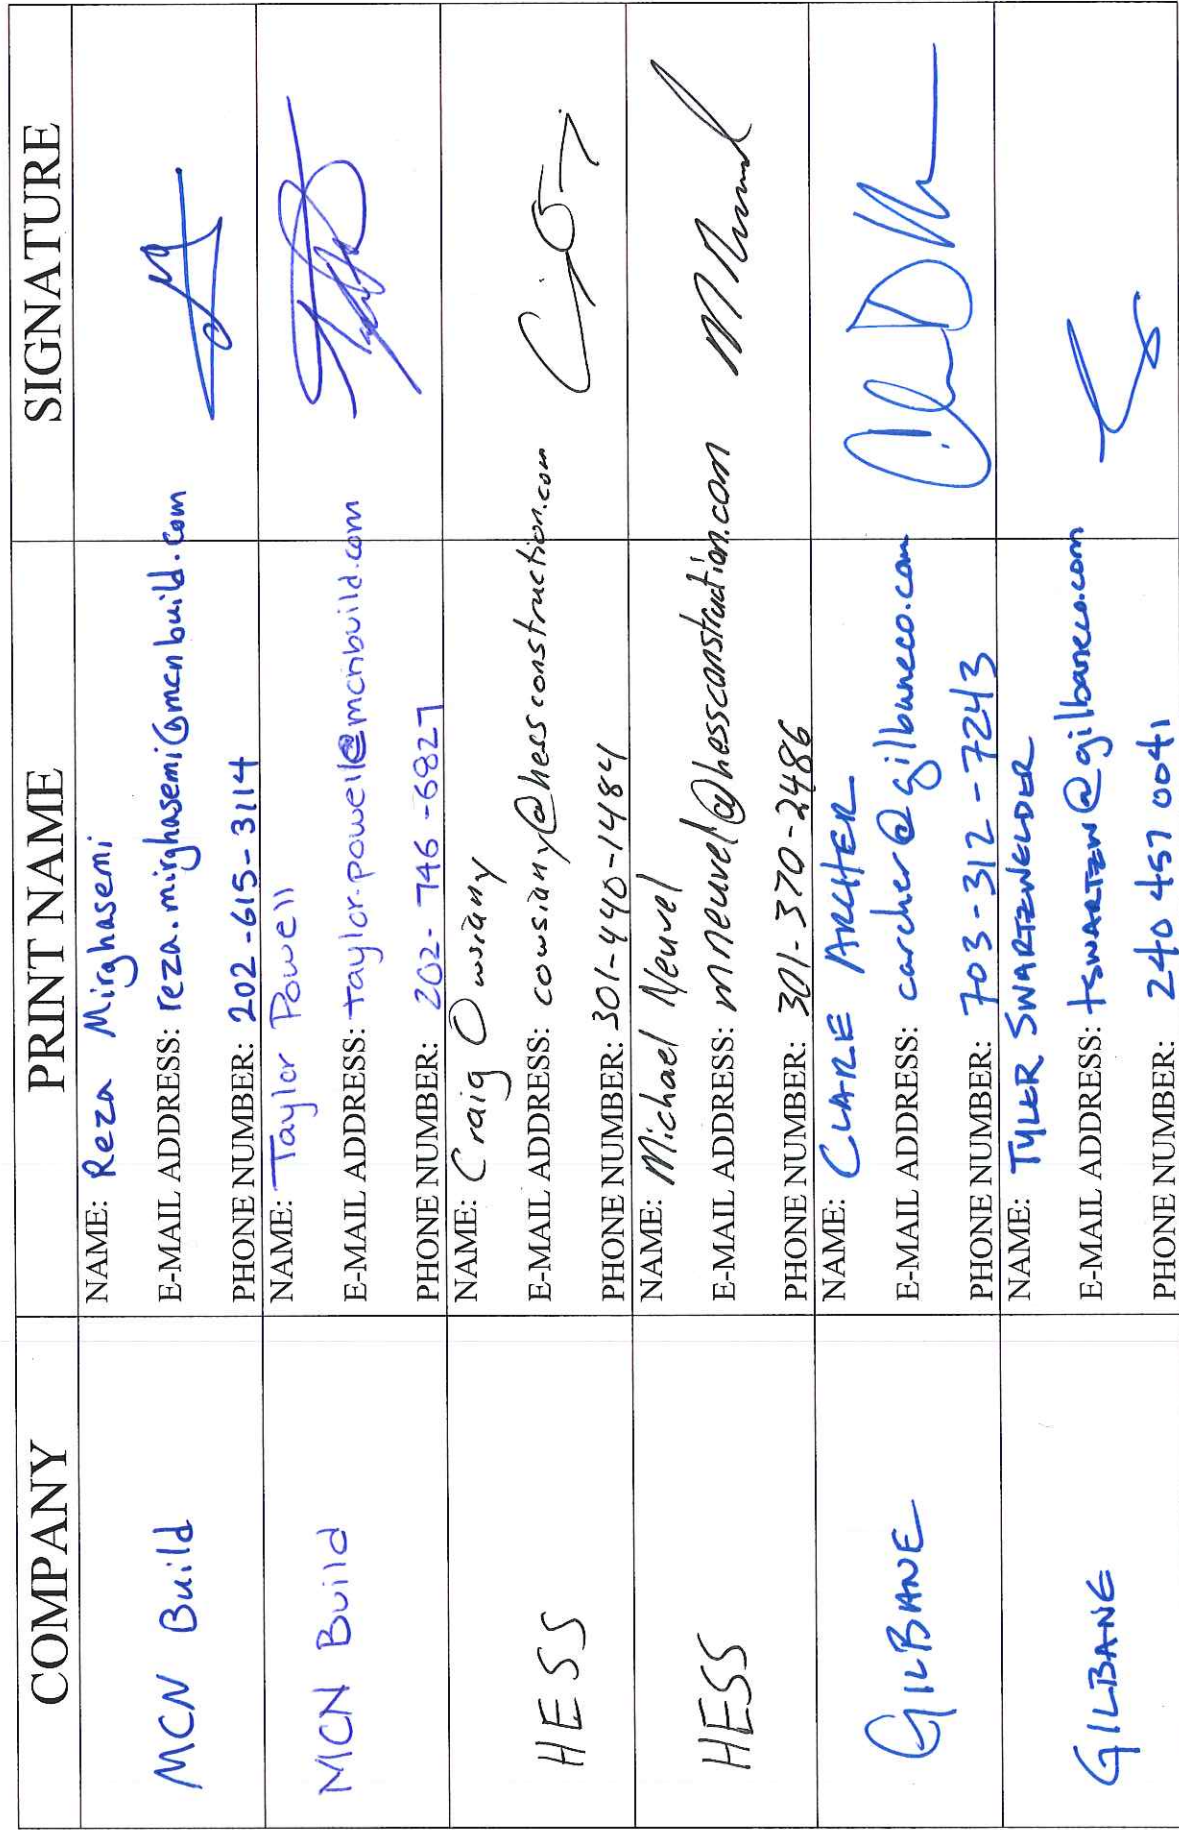 COMPANY PRINT NAME SIGNATURE
MCN Build
NAME: Reza Mirghasemi
E-MAIL ADDRESS: reza.mirghasemi@mcnbuild.com
PHONE NUMBER: 202-615-3114
MCN Build
NAME: Taylor Powell
E-MAIL ADDRESS: taylor.powell@mcnbuild.com
PHONE NUMBER: 202-746-6827
HESS
NAME: Craig Owsiany
E-MAIL ADDRESS: cowsiany@hessconstruction.com
PHONE NUMBER: 301-440-1484
HESS
NAME: Michael Neuvel
E-MAIL ADDRESS: mneuvel@hessconstruction.com
PHONE NUMBER: 301-370-2486
GILBANE
NAME: CLARE ARCHER
E-MAIL ADDRESS: carcher@gilbaneco.com
PHONE NUMBER: 703-312-7243
GILBANE
NAME: TYLER SWARTZWELDER
E-MAIL ADDRESS: tswartzw@gilbaneco.com
PHONE NUMBER: 240 457 0041